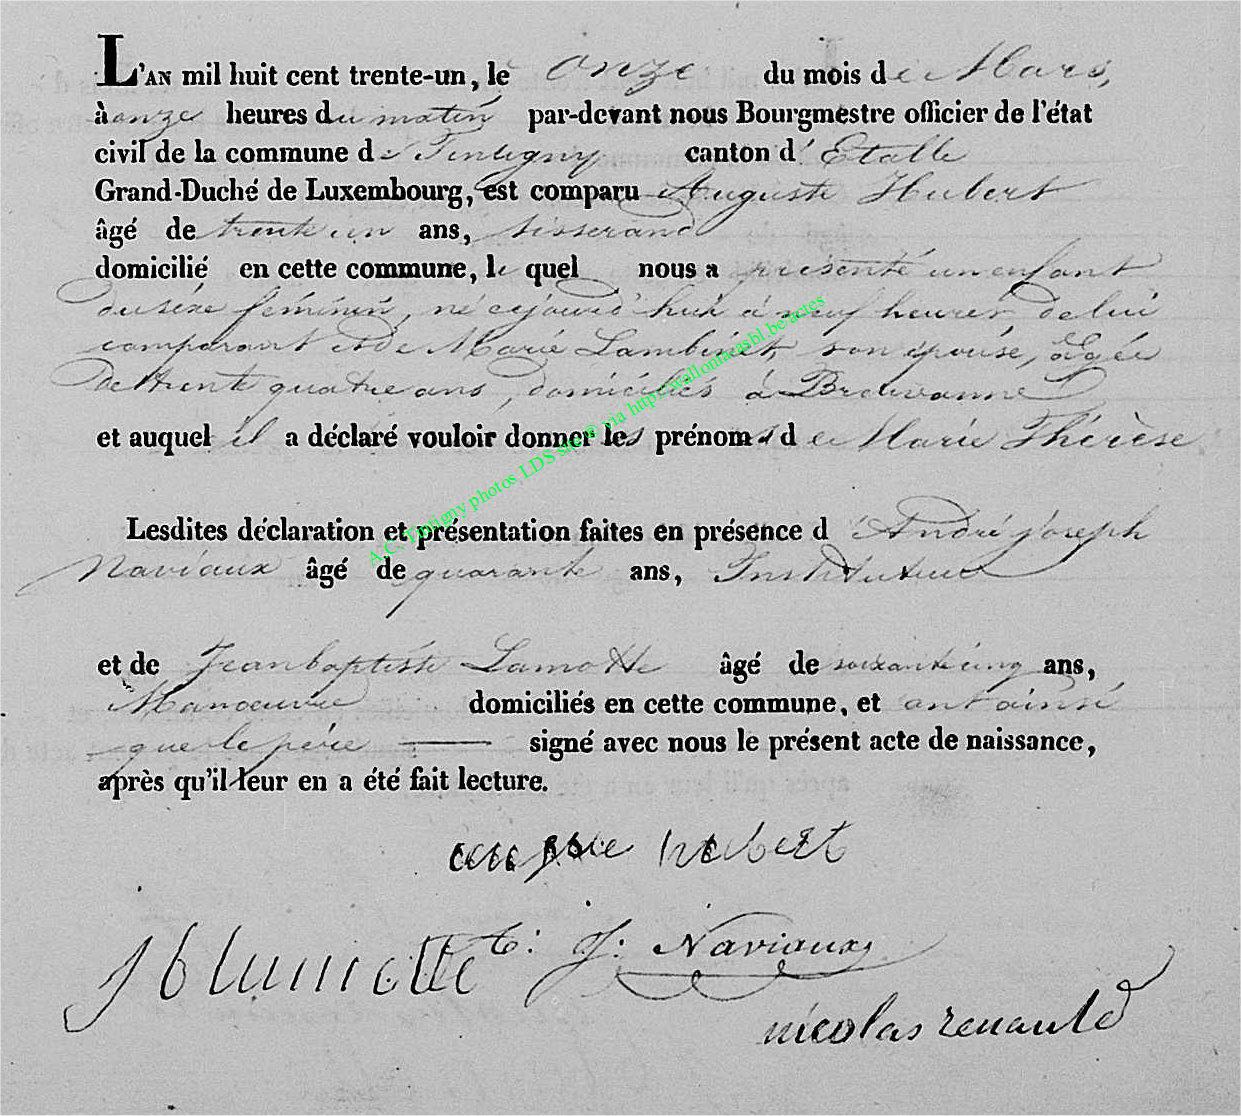 L'AN mil huit cent trente-un, le onze du mois de Mars,
à onze heures du matin par-devant nous Bourgmestre officier de l'état
civil de la commune de Tintigny canton d'Etalle
Grand-Duché de Luxembourg, est comparu Auguste Hubert
âgé de trente un ans, tisserand
domicilié en cette commune, le quel nous a présenté un enfant
du sexe féminin, né cejourd'hui à neuf heures de lui
comparant et de Marie Lambinet, son épouse, âgée
de trente quatre ans, domiciliés à Breuvanne
et auquel il a déclaré vouloir donner les prénoms de Marie Thérèse
A.C. Tintigny photos LDS site © via http://wallonicasbl.be/actes
Lesdites déclaration et présentation faites en présence d'André joseph
Naviaux âgé de quarante ans, Instituteur
et de Jean baptiste Lamotte âgé de soixante cinq ans,
Manoeuvre domiciliés en cette commune, et ont ainsi
que le père signé avec nous le présent acte de naissance,
après qu'il leur en a été fait lecture.
hubert
J. Naviaux
nicolas renauld